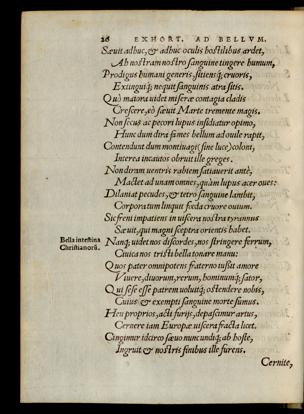 26 EXHORT. AD BELLVM.
Sæuit adhuc, & adhuc oculis hostilibus ardet,
Ah nostram nostro sanguine tingere humum,
Prodigus humani generis, sitiensq; cruoris,
Extinguiq; nequit sanguinis atra sitis.
Quò maiora videt miseræ contagia cladis
Crescere, eò sæuit Marte tremente magis.
Non secus ac pecori lupus insidiatur opimo,
Hunc dum dira fames bellum ad ouile rapit,
Contendunt dum montiuagi (sine luce) coloni,
Interea incautos obruit ille greges.
Non diram ventris rabiem satiauerit antè,
Mactet ad vnam omnes, quàm lupus acer oues:
Dilaniat pecudes, & tetro sanguine lambit,
Corpora tum linquit fœda cruore ouium.
Sic freni impatiens in viscera nostra tyrannus
Sæuit, qui magni sceptra orientis habet.
Bella intestina Christianorũ.
Nanq; videt nos discordes, nos stringere ferrum,
Ciuica nos tristi bella tonare manu:
Quos pater omnipotens fraterno iussit amore
Viuere, diuorum, rerum, hominumq; sator,
Qui sese esse patrem voluitq; ostendere nobis,
Cuius & exempti sanguine morte sumus.
Heu proprios, acti furijs, depascimur artus,
Cernere iam Europæ viscera fracta licet.
Cingimur idcirco sæuo nuncundiq; ab hoste,
Ingruit & nostris finibus ille furens.
Cernite,